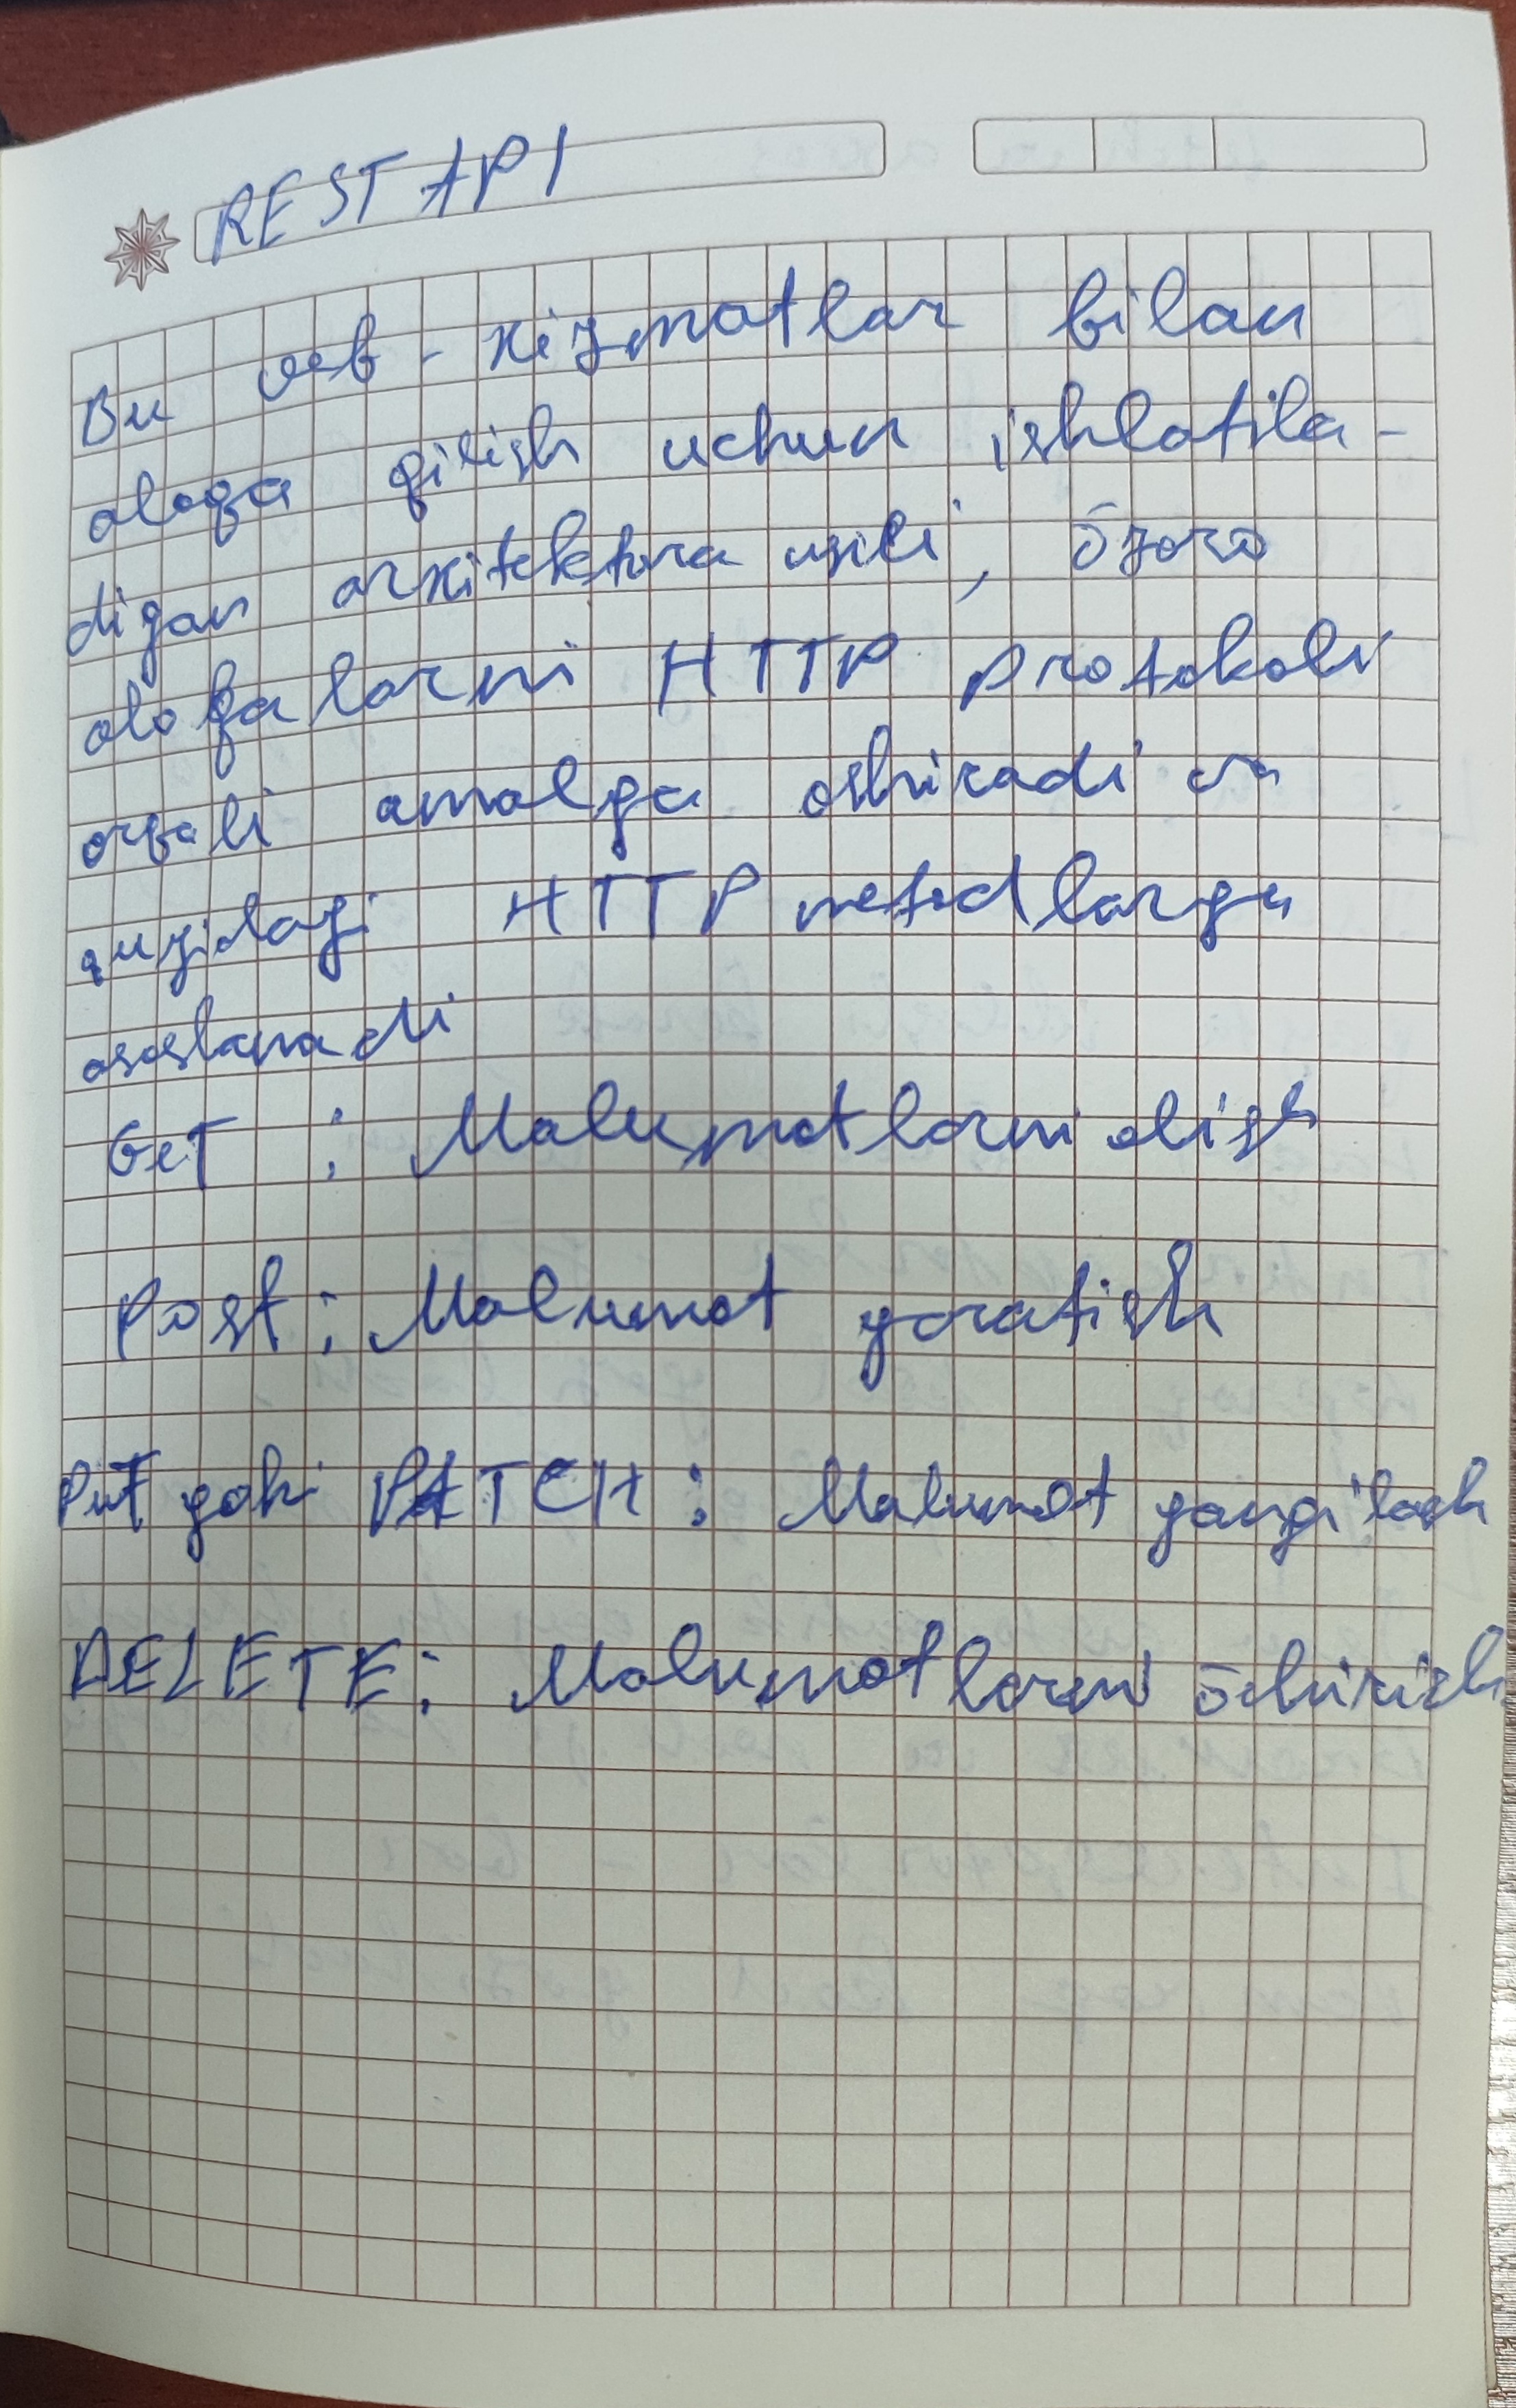 REST API
Bu veb - xizmatlar bilan
aloqa qilish uchun ishlatila-
digan arxitektura usili, ōzaro
aloqalarni HTTP protokoli
orqali amalga oshiradi va
quyidagi HTTP metodlarga
asoslanadi
GeT : Malumotlarni olish
Post : Malumot yaratish
PuT yoki PATCH : Malumot yangilash
DELETE : Malumotlarni ōchirish